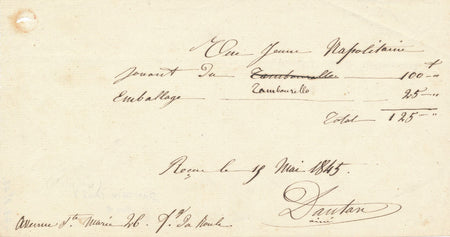 Une Jeune Napolitaine
jouant du Tambourelle 100 f "
Tambourello
Emballage 25 "
Total 125 "
Reçu le 15 Mai 1845.
Dantan
ainé
Avenue Ste Marie 26. fg du Roule